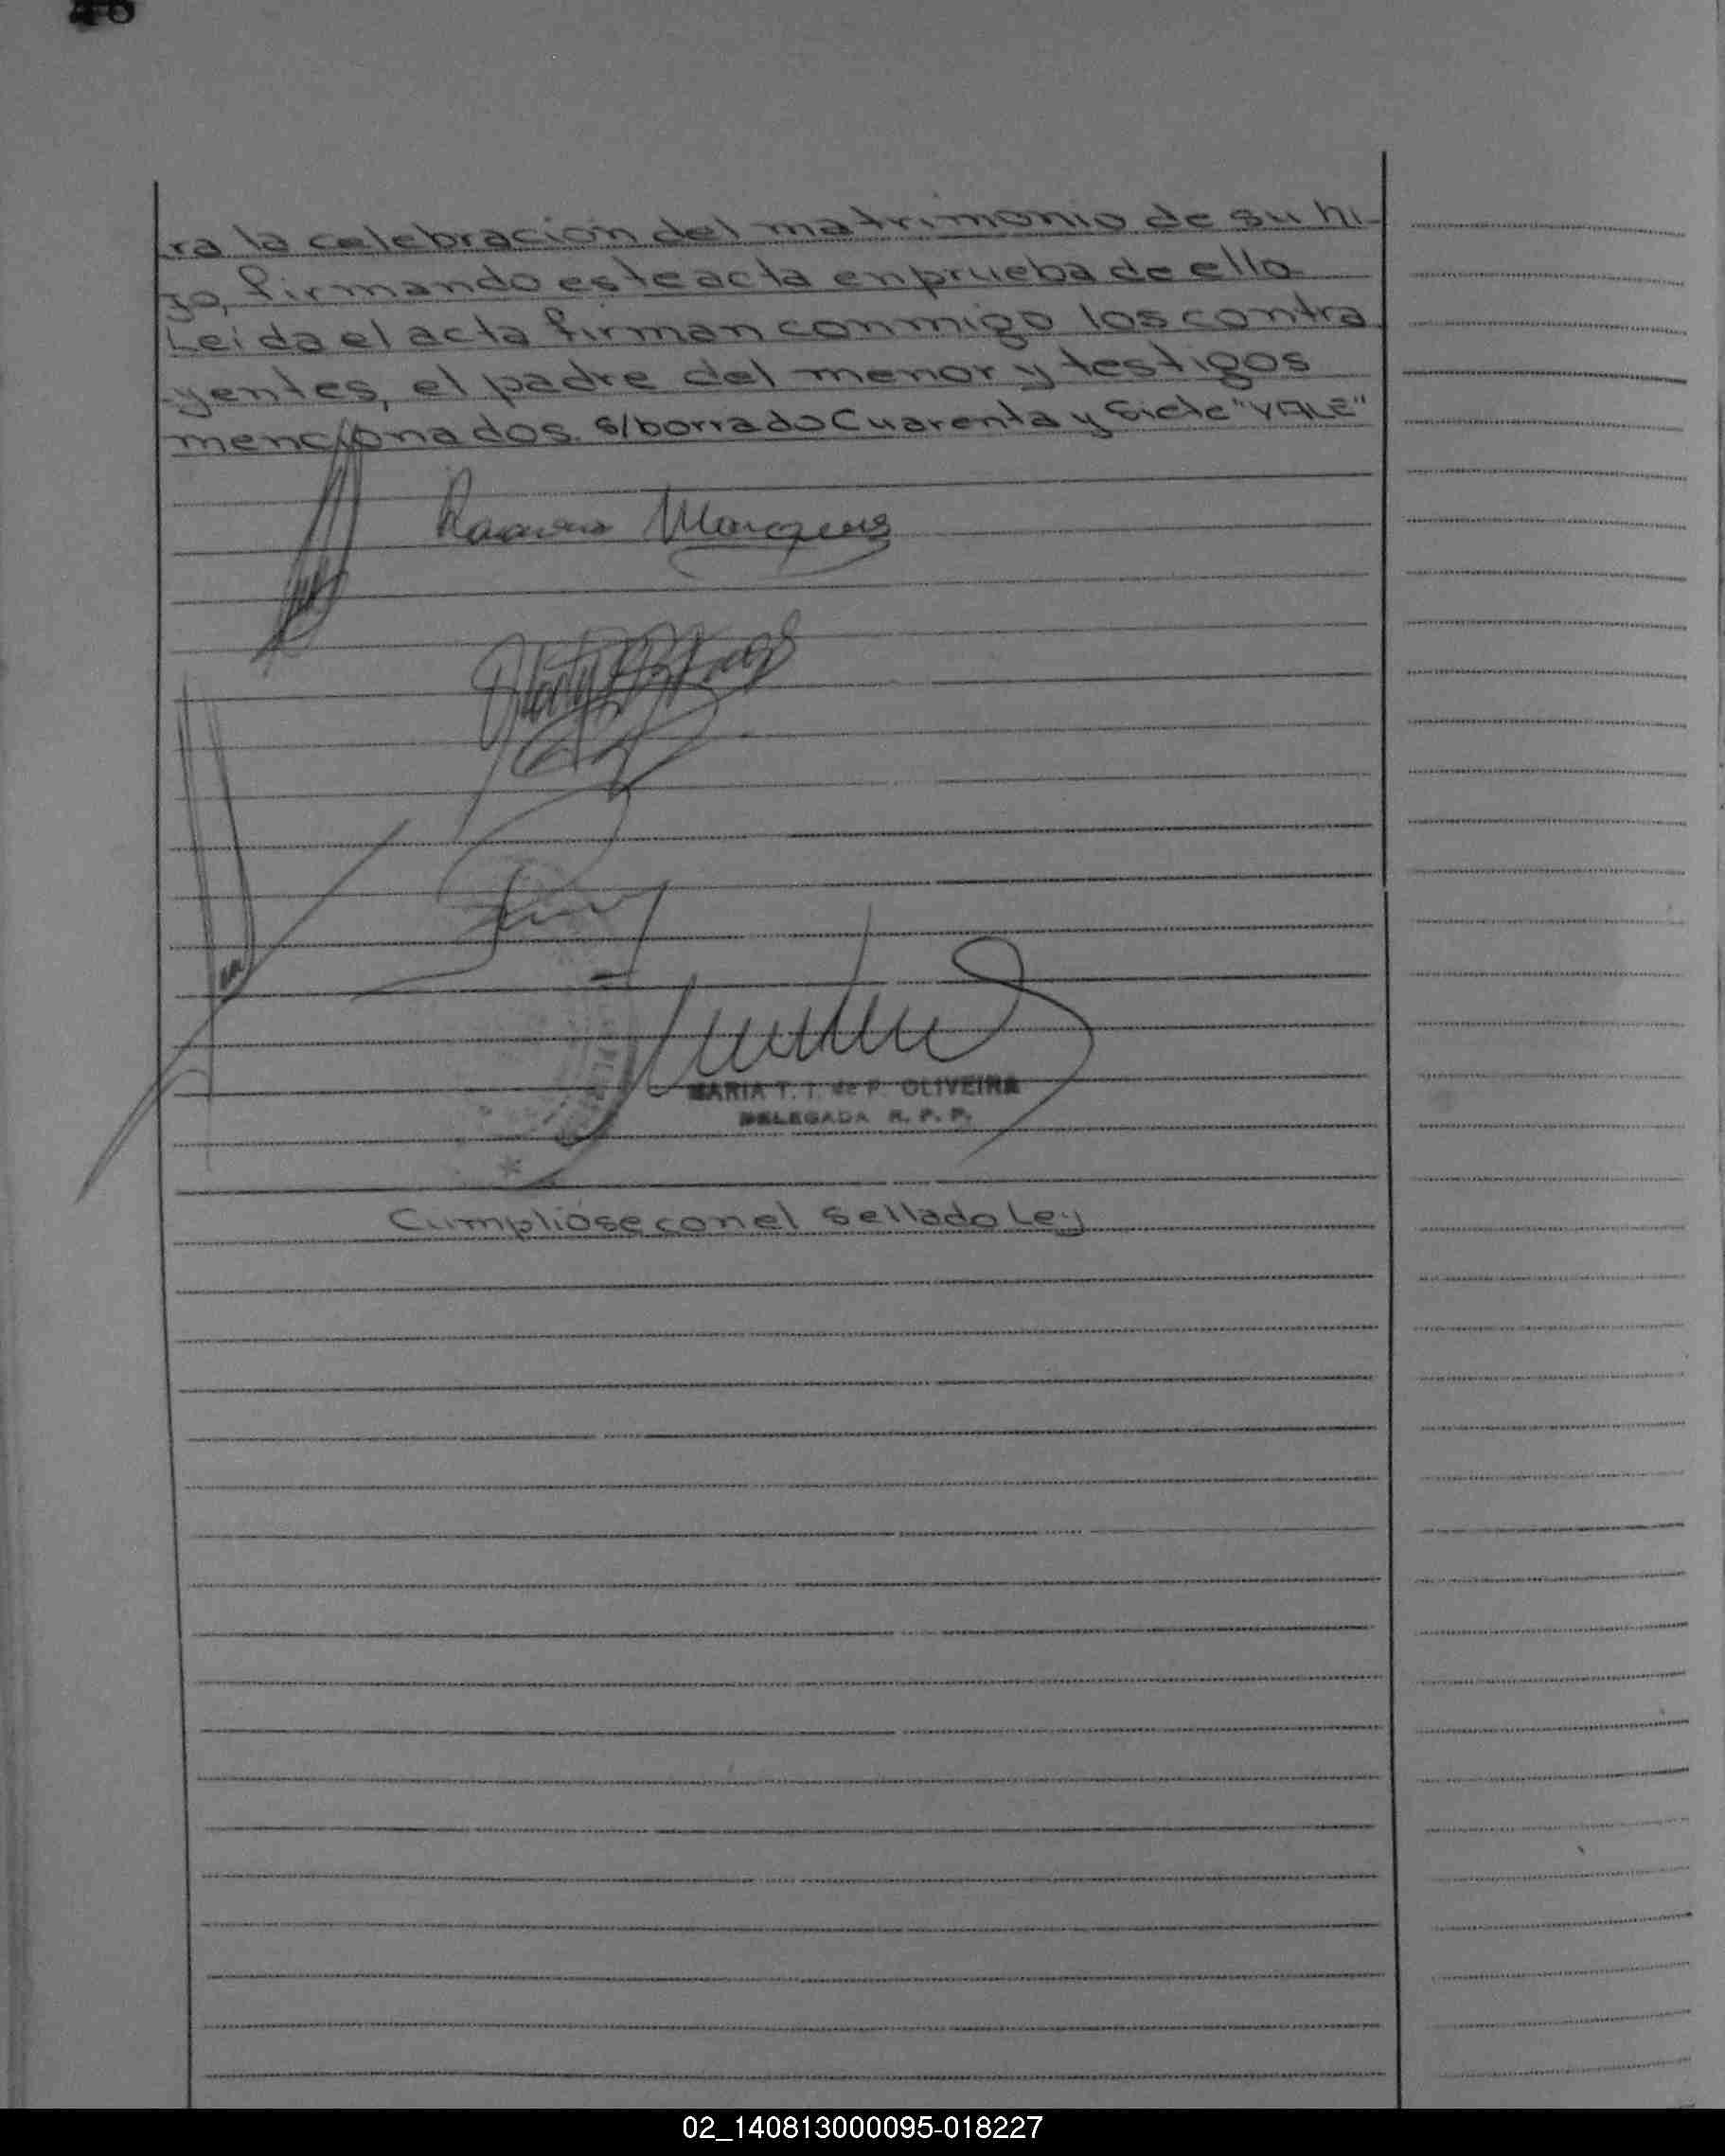 ra la celebración del matrimonio de su hi-
jo, firmando este acta en prueba de ello
Leída el acta firman conmigo los contra
yentes, el padre del menor y testigos
mencionados. s/borrado Cuarenta y Siete "VALE"
MARIA T. I. de P. OLIVEIRA
DELEGADA R. P. P.
Cumplióse con el Sellado Ley
02_140813000095-018227